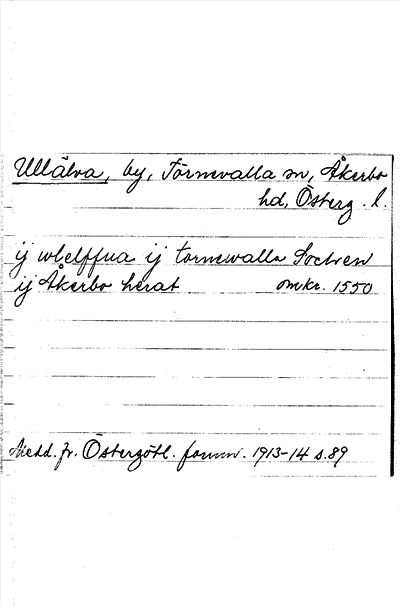 Ullälva, by, Törnevalla sn, Åkerbo
hd, Österg. l.
ij wlelffua ij tornewalla Sochen
ij Åkerbo herat omkr. 1550
Medd. fr. Östergötl. fornm. 1913-14 s. 89